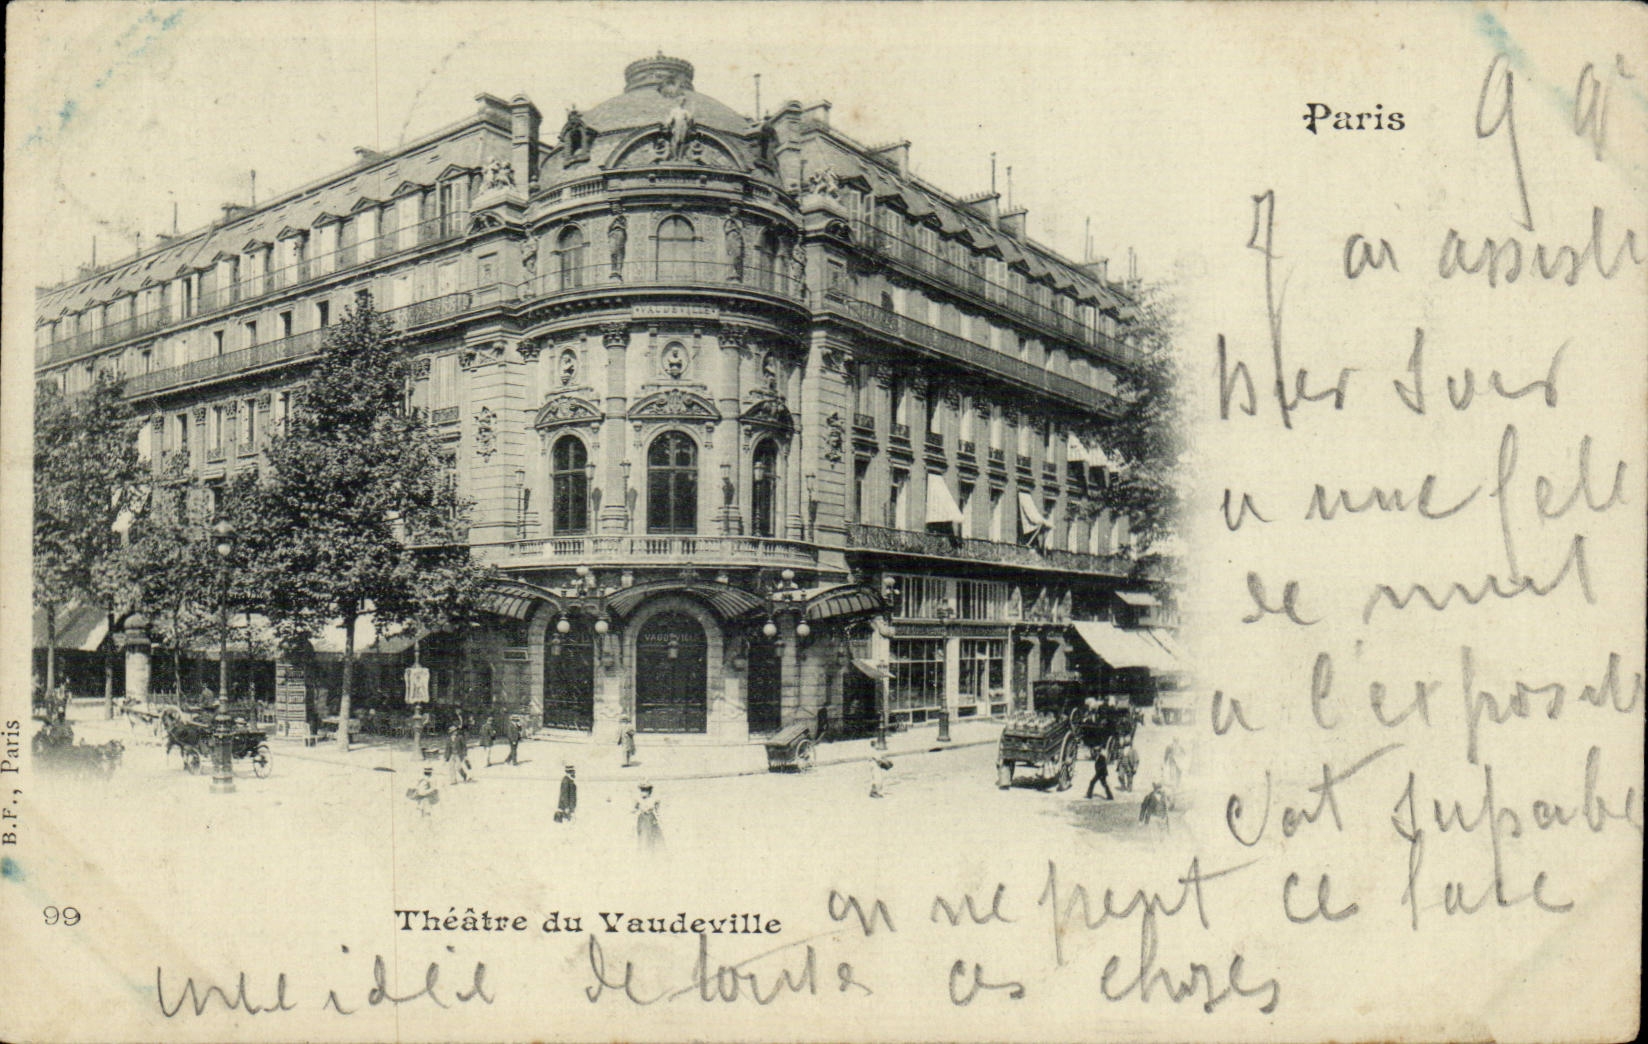 Paris
9 9e
J ai assiste
hier soir
a une fete
de nuit
a l'exposit
c'est superbe
on ne peut ce faire
une idée de toute ces choses
Théâtre du Vaudeville
99
B.F., Paris
VAUDEVILLE
VAUDEVILLE